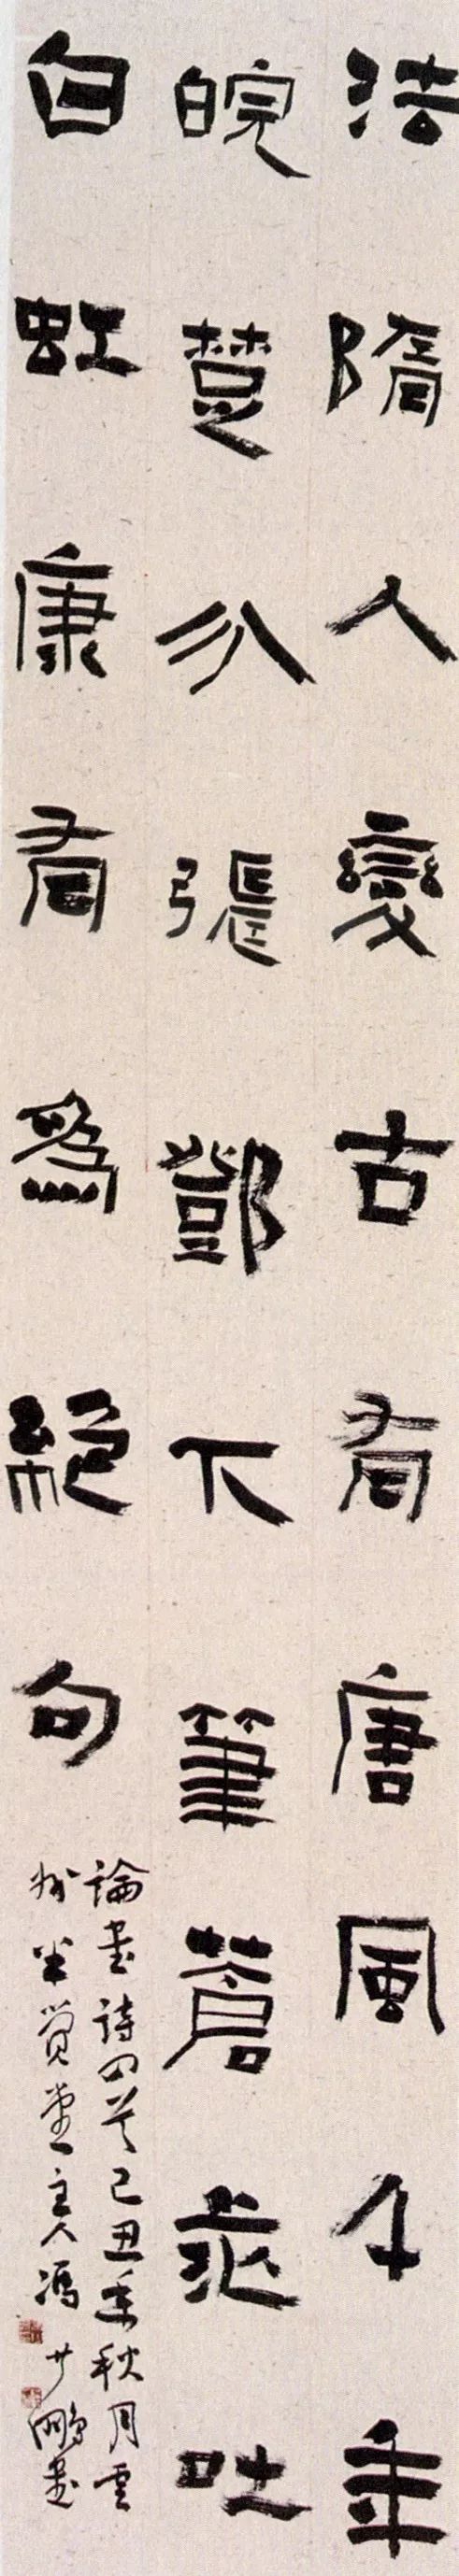 法隋人變古有唐風千年
皖楚分張鄧下筆蒼茫吐
白虹康有爲絕句
論書詩四首己丑年秋月雲
半覺堂主人馮少鵬書